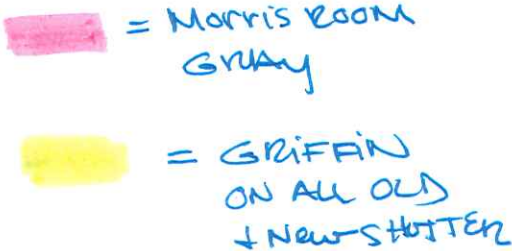 = Morris ROOM
GRAY
= GRiFFiN
ON ALL OLD
+ New SHUTTER